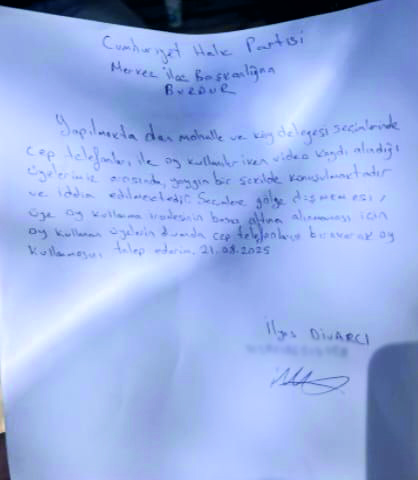 Cumhuriyet Halk Partisi
Merkez ilçe Başkanlığına
BURDUR
Yapılmakta olan mahalle ve köy delegesi seçimlerinde
cep telefonları ile oy kullanılırken video kaydı alındığı
üyelerimiz arasında, yaygın bir şekilde konuşulmaktadır
ve iddia edilmektedir. Seçimlere gölge düşmemesi,
üye oy kullanma iradesinin baskı altına alınmaması için
oy kullanan üyelerin cep telefonlarını bırakarak oy
kullanmasını talep ederim. 21.08.2025
ilyas DiVARCI